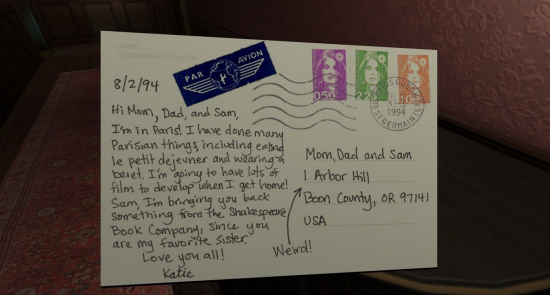 PARIS
8/2/94
PAR AVION
0,50
2,20
1994
ST GERMAIN
Hi Mom, Dad, and Sam,
I'm in Paris! I have done many
Parisian things, including eating
le petit dejeuner and wearing a
beret. I'm going to have lots of
film to develop when I get home!
Sam, I'm bringing you back
something from the Shakespeare
Book Company, since you
are my favorite sister.
Love you all!
Katie
Mom, Dad and Sam
1 Arbor Hill
Boon County, OR 97141
USA
Weird!